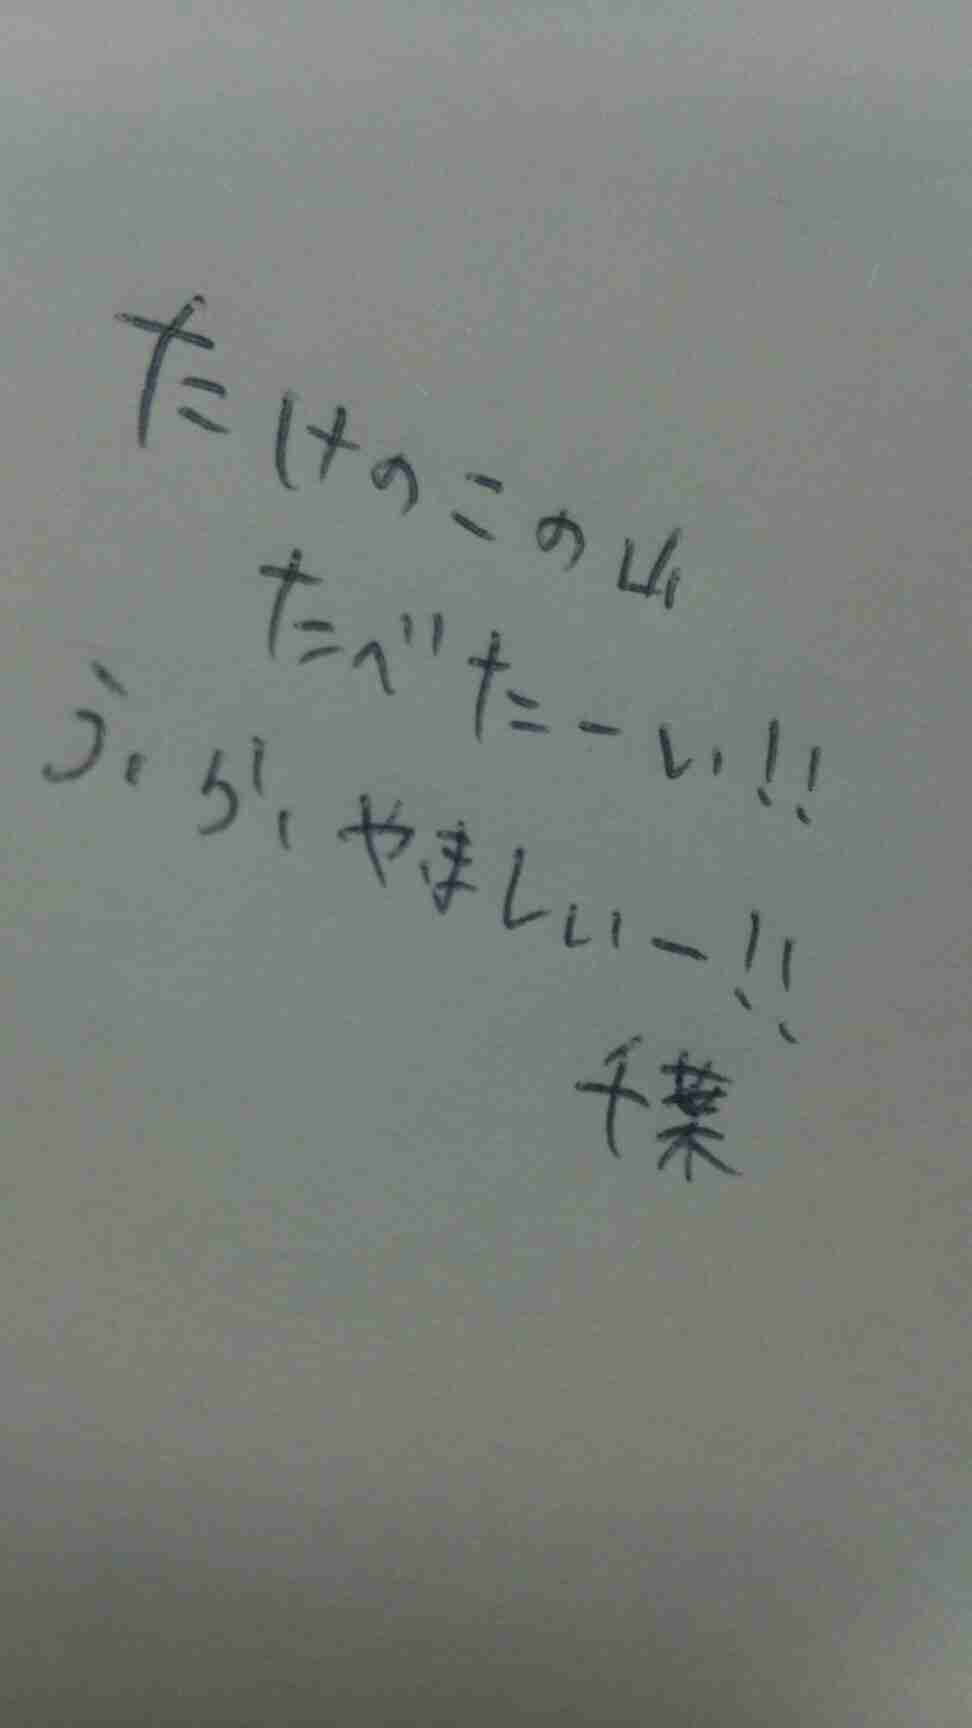 たけのこの山
たべたーい!!
ふが、やましいー!!
千葉